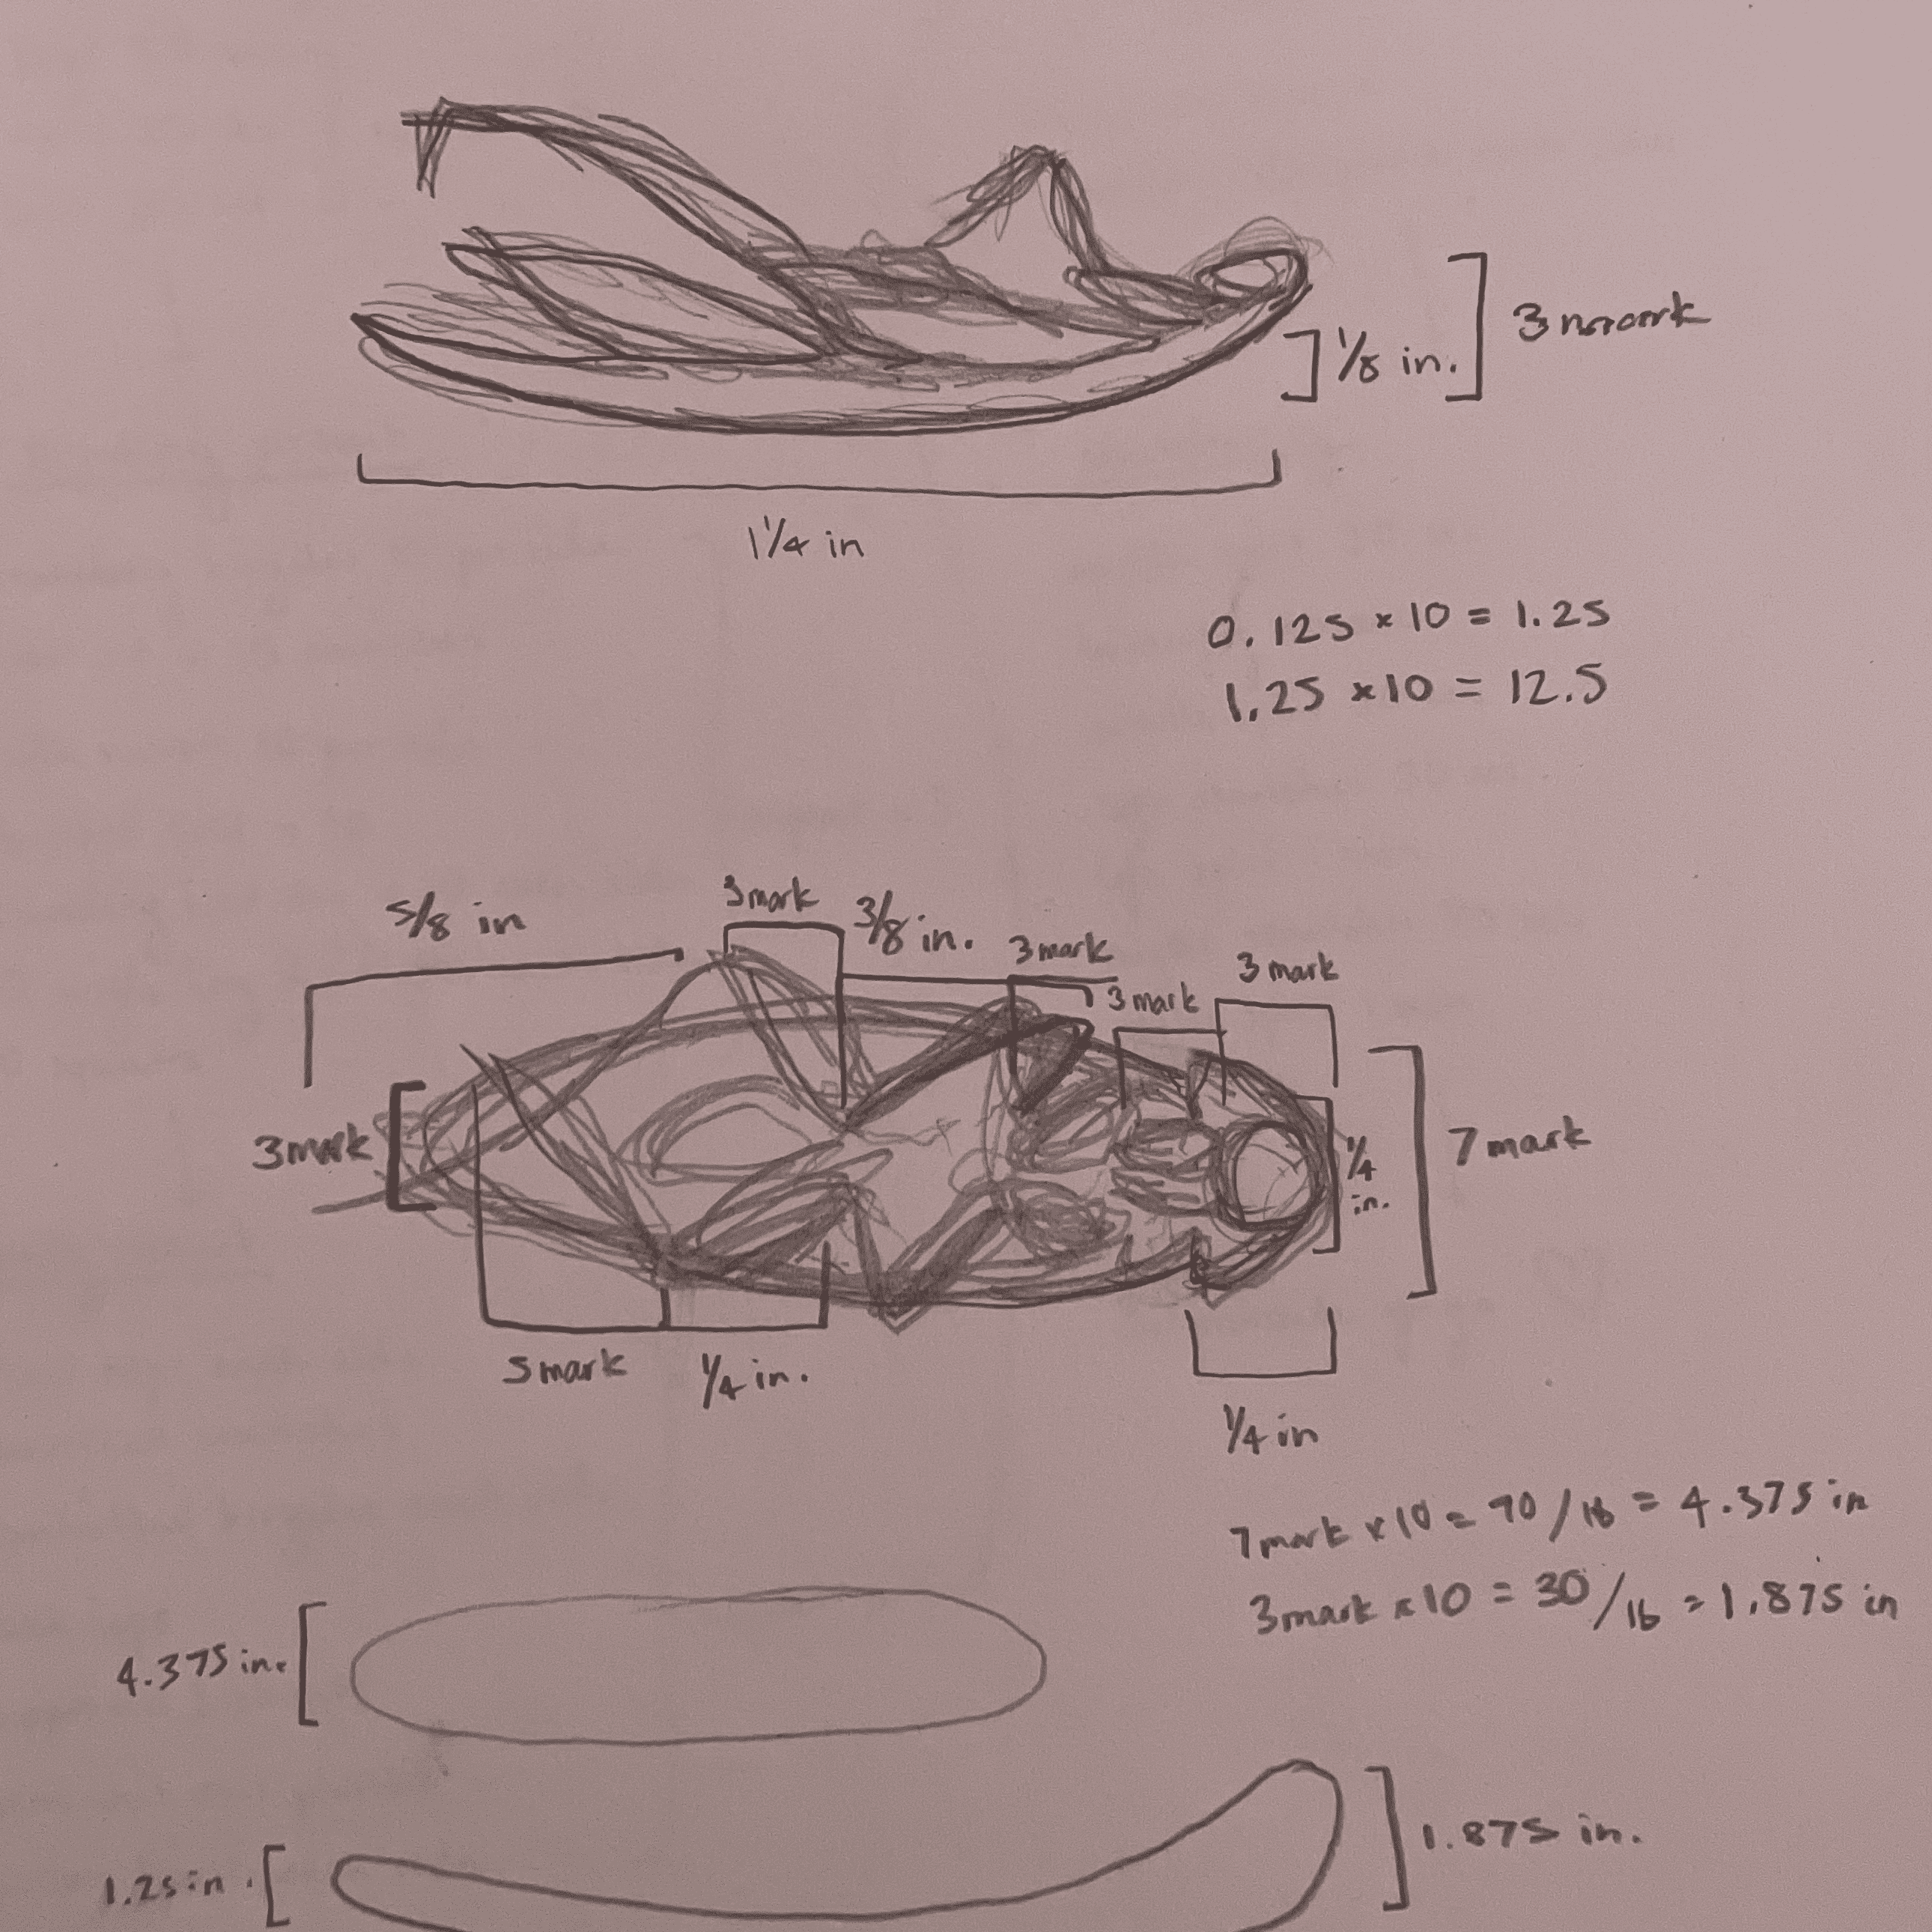 3 mark
1/8 in.
1 1/4 in
0.125 × 10 = 1.25
1.25 × 10 = 12.5
5/8 in
3 mark
3/8 in.
3 mark
3 mark
3 mark
3 mark
1/4 in.
7 mark
5 mark
1/4 in.
1/4 in
7 mark × 10 = 70/16 = 4.375 in
3 mark × 10 = 30/16 = 1.875 in
4.375 in.
1.875 in.
1.25 in.